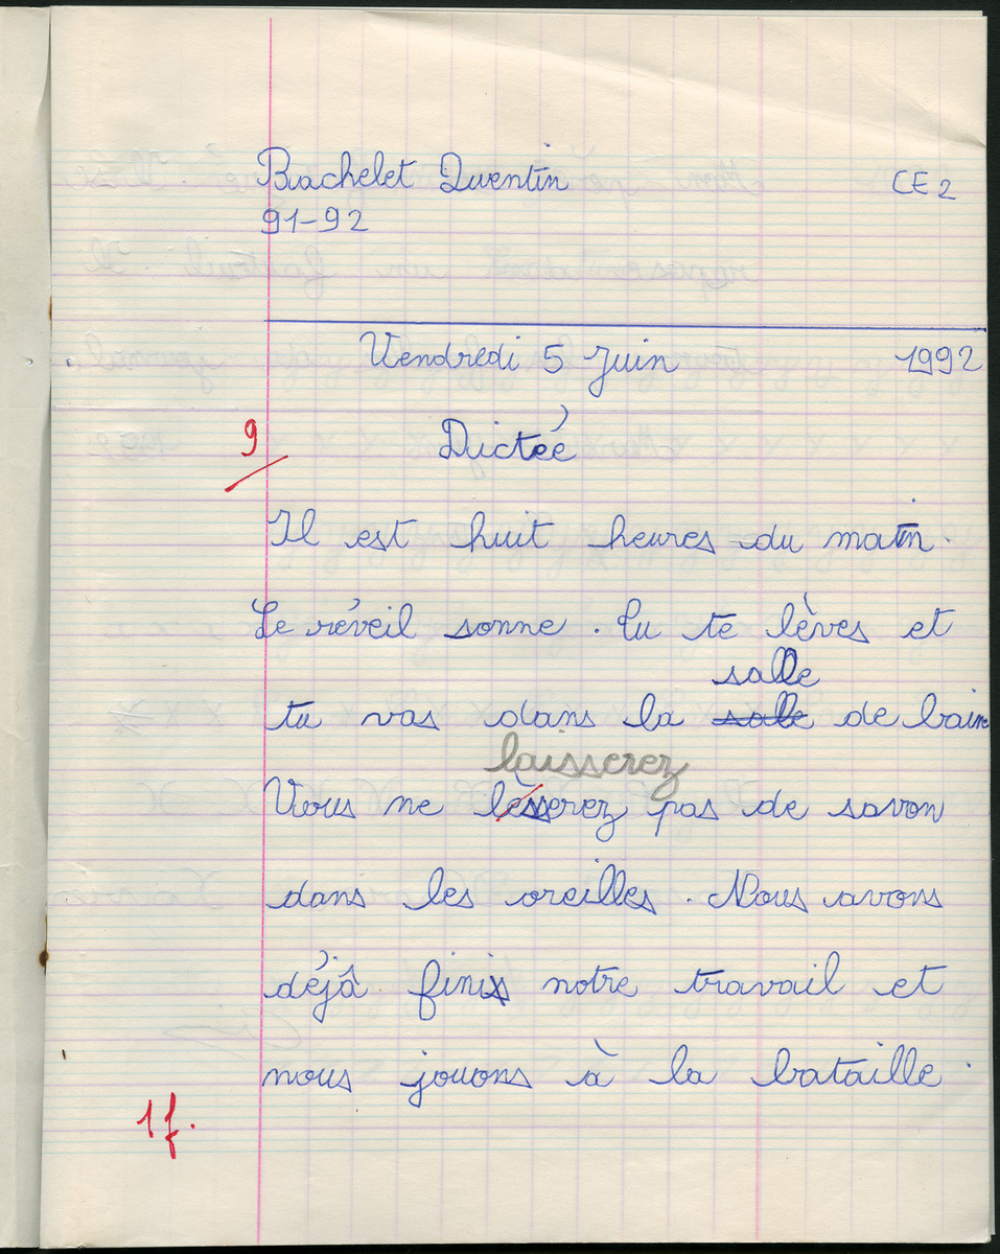 Bachelet Quentin CE2
91-92
Vendredi 5 Juin 1992
9 Dictée
Il est huit heures du matin.
Le réveil sonne. Tu te lèves et
salle
tu vas dans la salle de bain
laisserez
Vous ne lèsserez pas de savon
dans les oreilles. Nous avons
déjà finis notre travail et
nous jouons à la bataille.
1f.